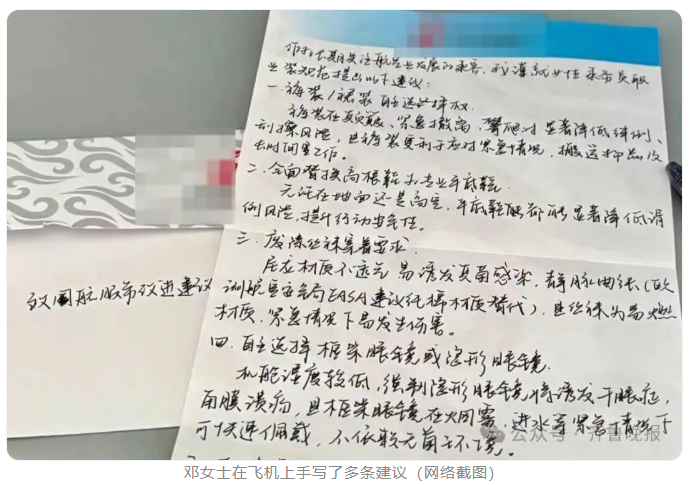 作为长期关注航空业发展的乘客,我谨就女性乘务员职
业装规范提出以下建议:
一.裤装/裙装自主选择权.
裤装在颠簸、紧急撤离、攀爬时显著降低绊倒、
刮擦风险,且裤装更利于应对紧急情况,搬运物品及
长时间客工作。
二.全面替换高跟鞋为专业平底鞋.
无论在地面还是高空,平底鞋能都能显著降低滑
倒风险,提升行动安全性。
三.废除丝袜穿着要求.
尼龙材质不透气易诱发真菌感染,静脉曲张(欧
洲航空安全局EASA建议纯棉材质替代),且丝袜为易燃
材质,紧急情况下易发生伤害。
四.自主选择框架眼镜或隐形眼镜.
机舱湿度较低,强制隐形眼镜将诱发干眼症,
角膜溃疡,且框架眼镜在火烟雾、进水等紧急情况下
可快速佩戴,不依赖无菌环境。
致国航服务改进建议
公众号·齐鲁晚报
邓女士在飞机上手写了多条建议(网络截图)